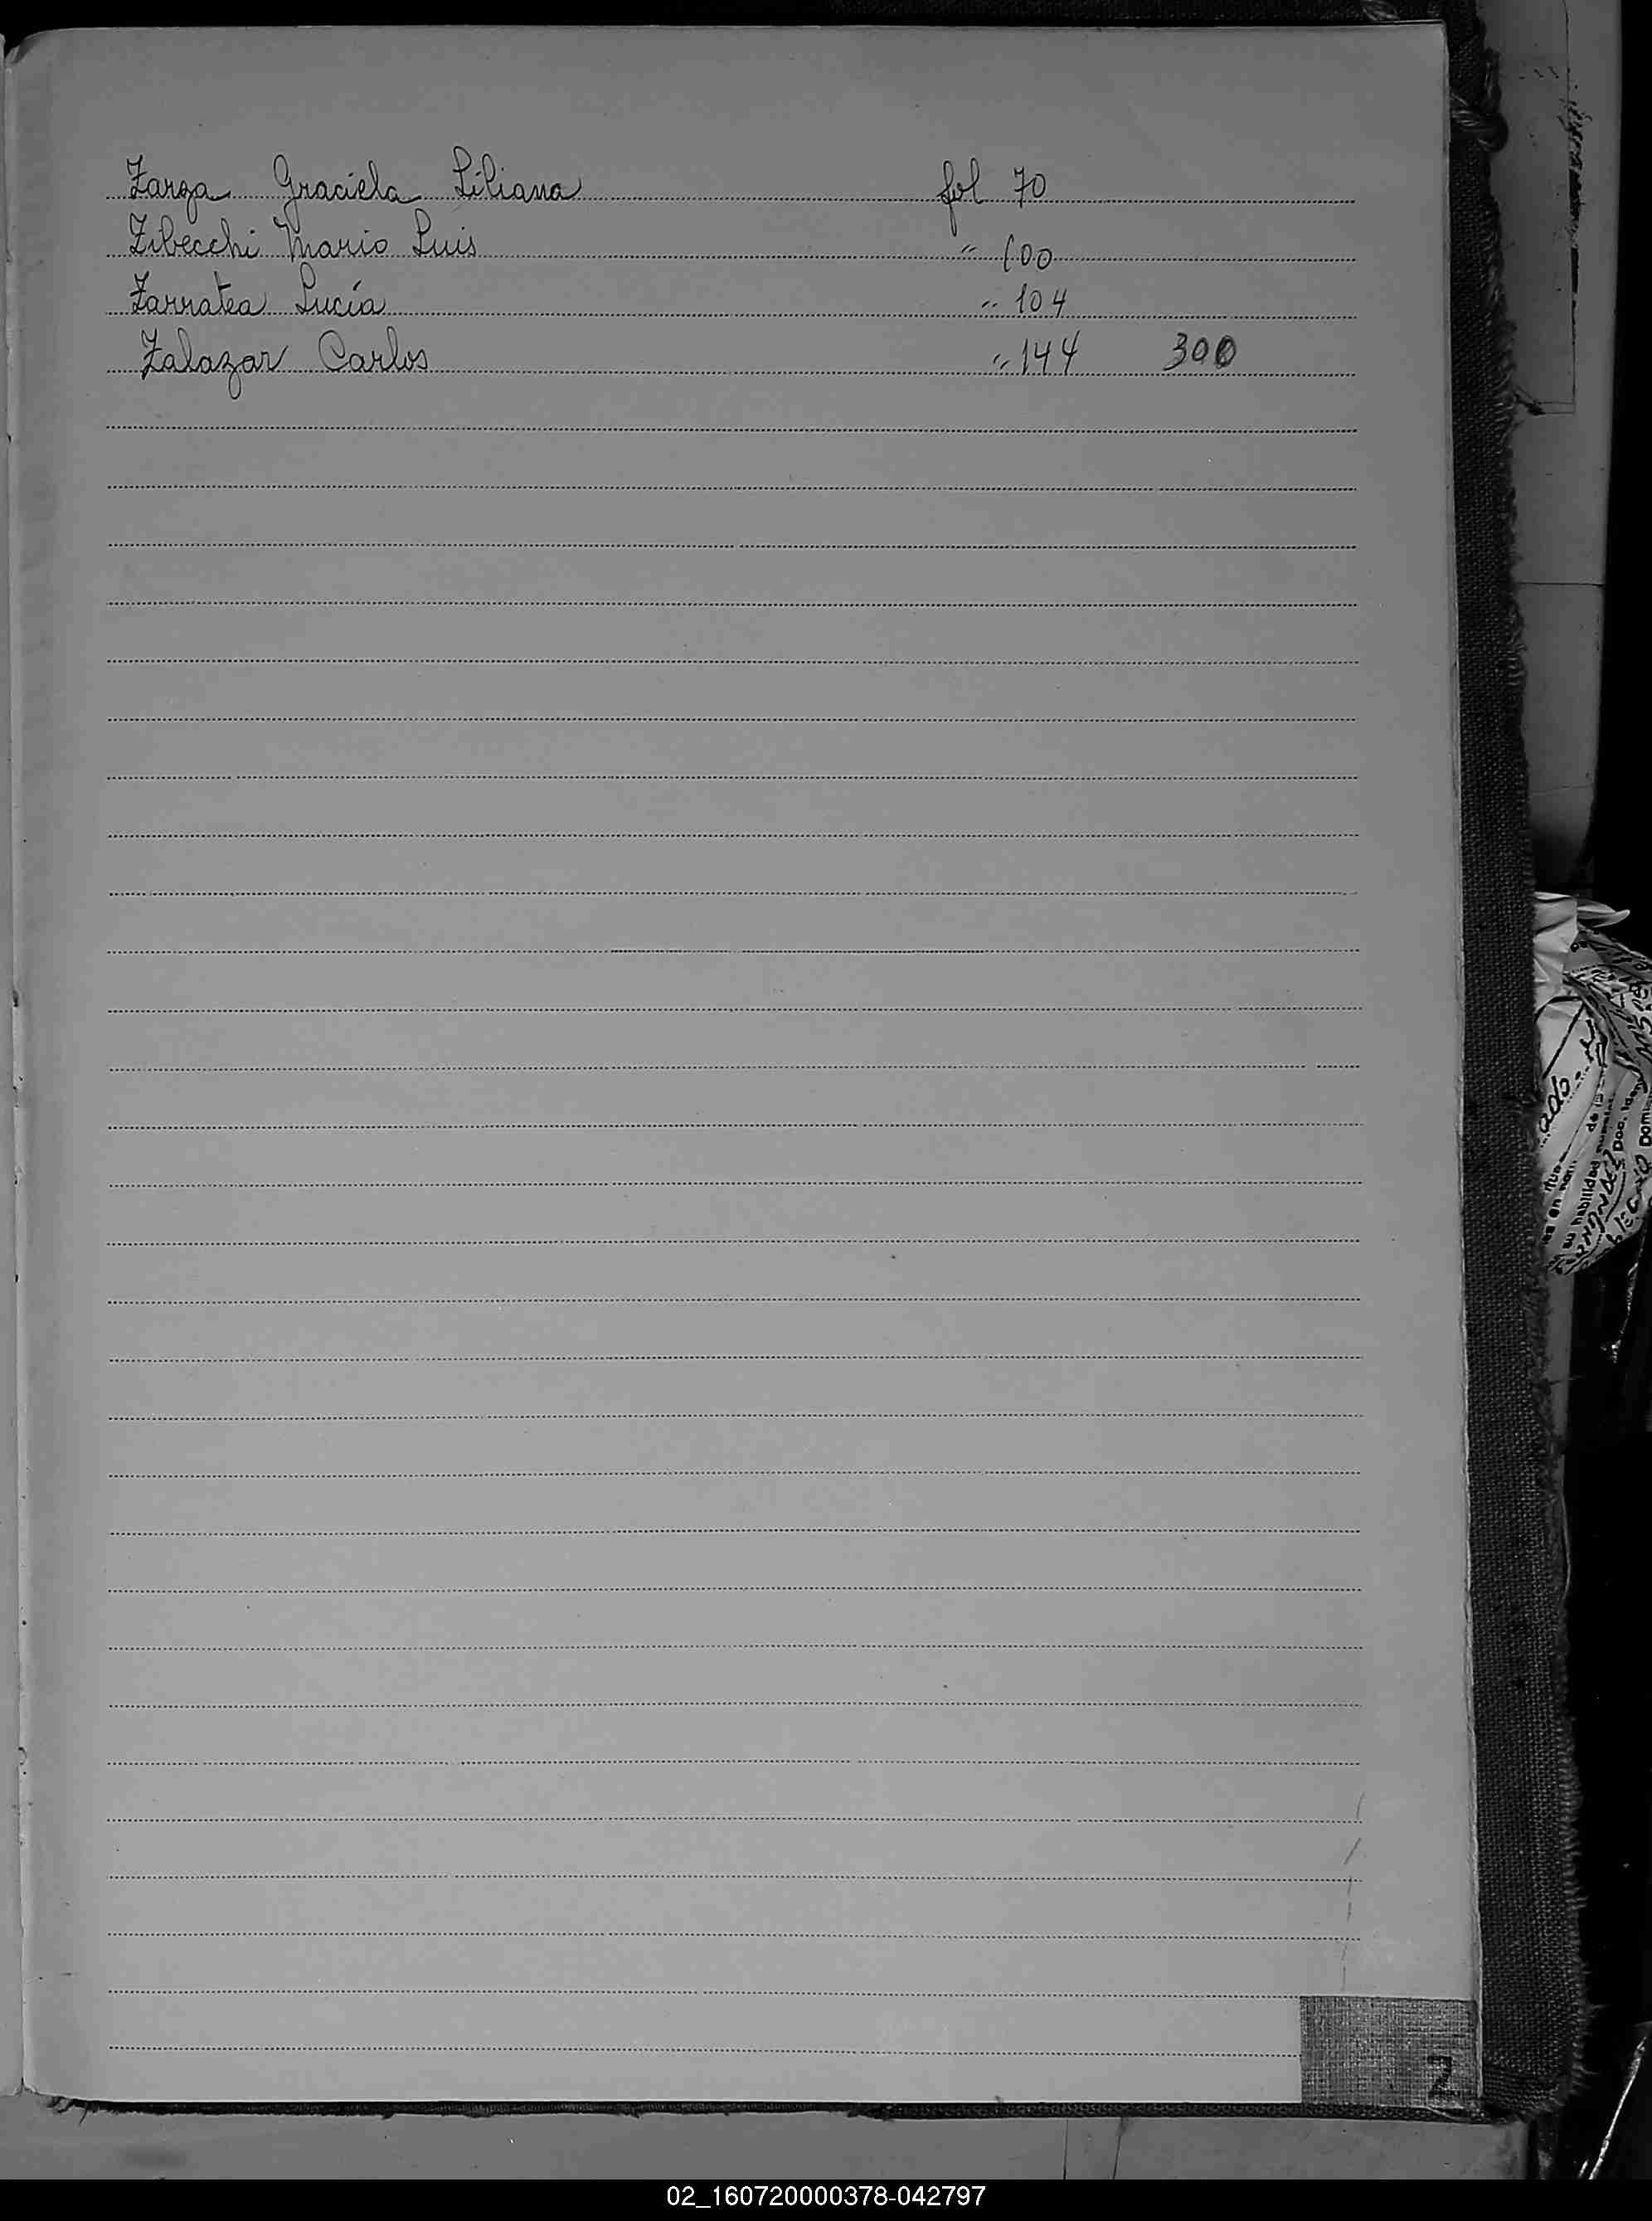 Zarza Graciela Liliana fol 70
Zibecchi Mario Luis " 100
Zarratea Lucía " 104
Zalazar Carlos " 144 300
Z
02_160720000378-042797